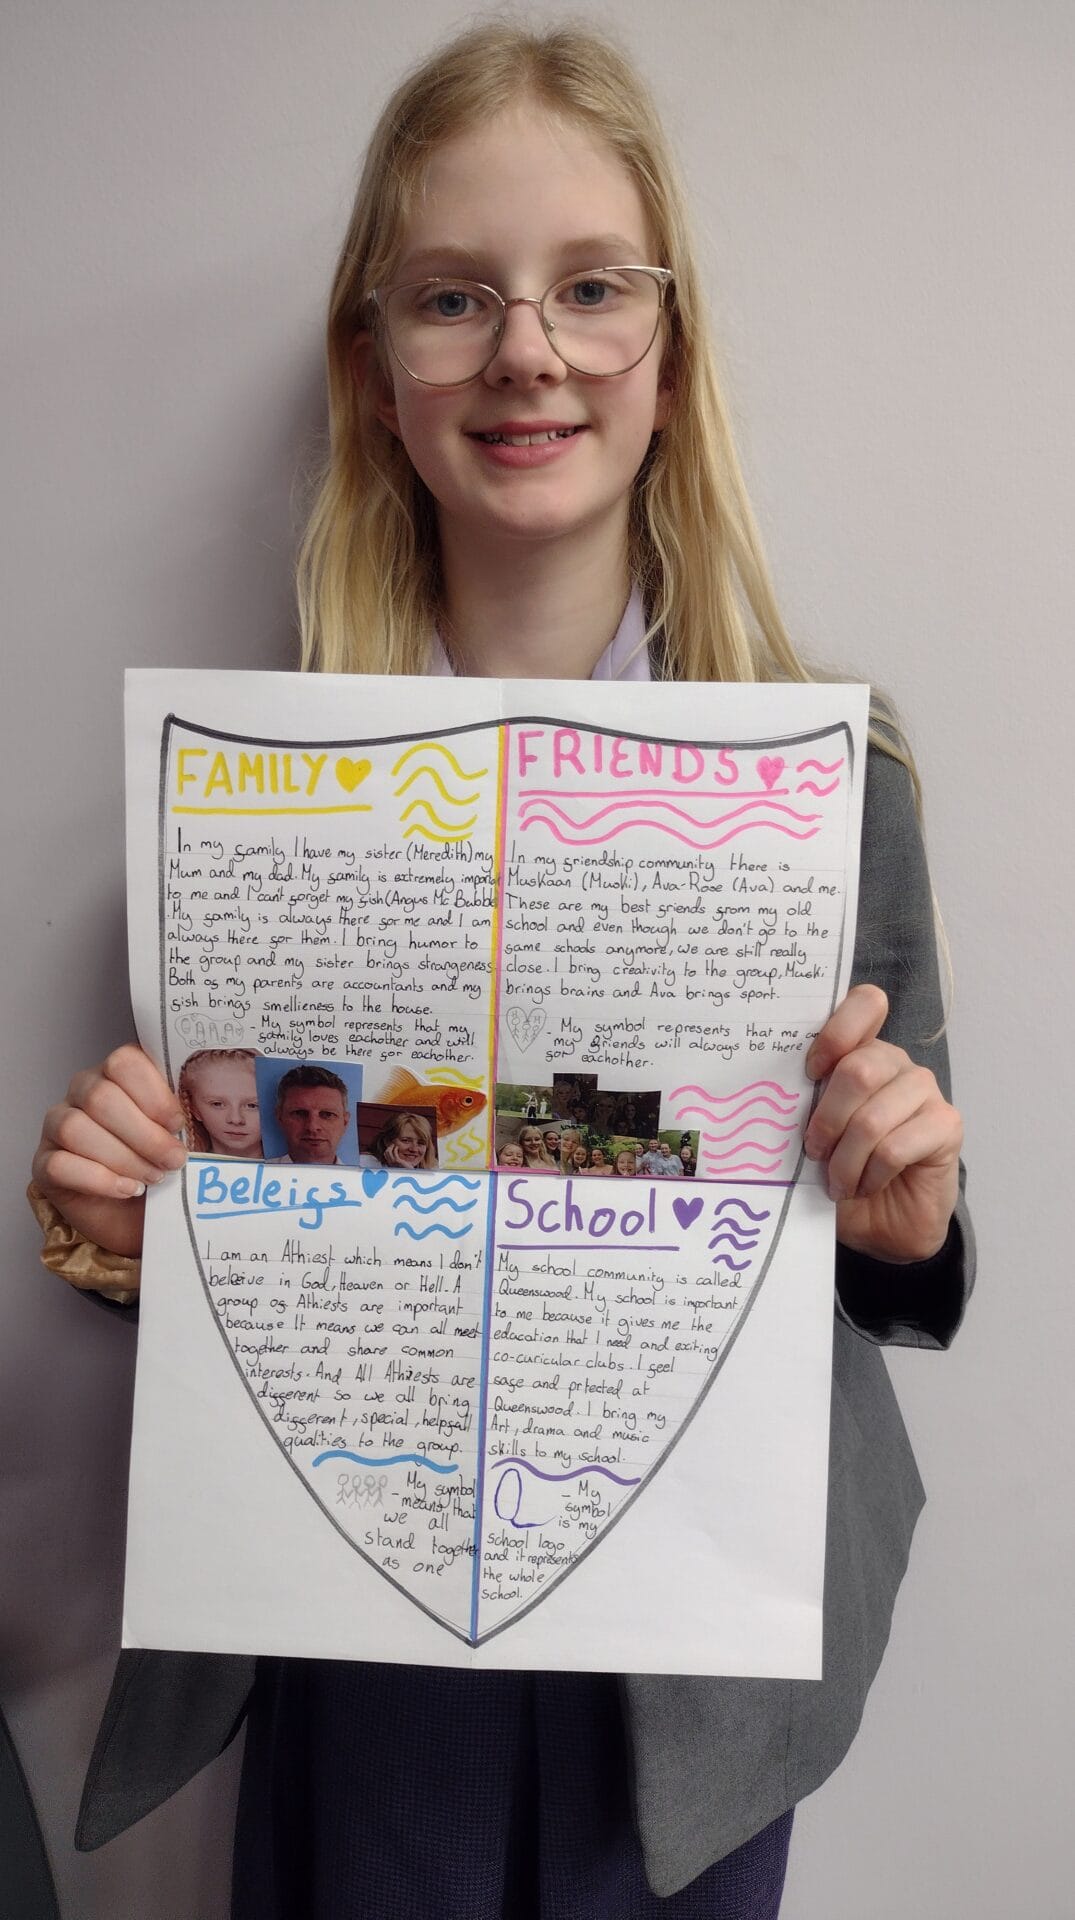 FAMILY
In my family I have my sister (Meredith) my
Mum and my dad. My family is extremely importa
to me and I can't forget my fish (Angus Mc Bubble
. My family is always there for me and I am
always there for them. I bring humor to
the group and my sister brings strangeness
Both of my parents are accountants and my
fish brings smellieness to the house.
- My symbol represents that my
family loves eachother and will
always be there for eachother.
FRIENDS
In my friendship community there is
Muskaan (Muski), Ava-Rose (Ava) and me.
These are my best friends from my old
school and even though we don't go to the
same schools anymore, we are still really
close. I bring creativity to the group, Muski
brings brains and Ava brings sport.
- My symbol represents that me an
my friends will always be there
for eachother.
Beleifs
I am an Athiest which means I don't
beleive in God, Heaven or Hell. A
group of Athiests are important
because It means we can all meet
together and share common
interests. And All Athiests are
different so we all bring
different, special, helpfull
qualities to the group.
- My symbol
means that
we all
stand together
as one
School
My school community is called
Queenswood. My school is important
to me because it gives me the
education that I need and exciting
co-curicular clubs. I feel
safe and prtected at
Queenswood. I bring my
Art, drama and music
skills to my school.
Q - My
symbol
is my
school logo
and it represents
the whole
school.